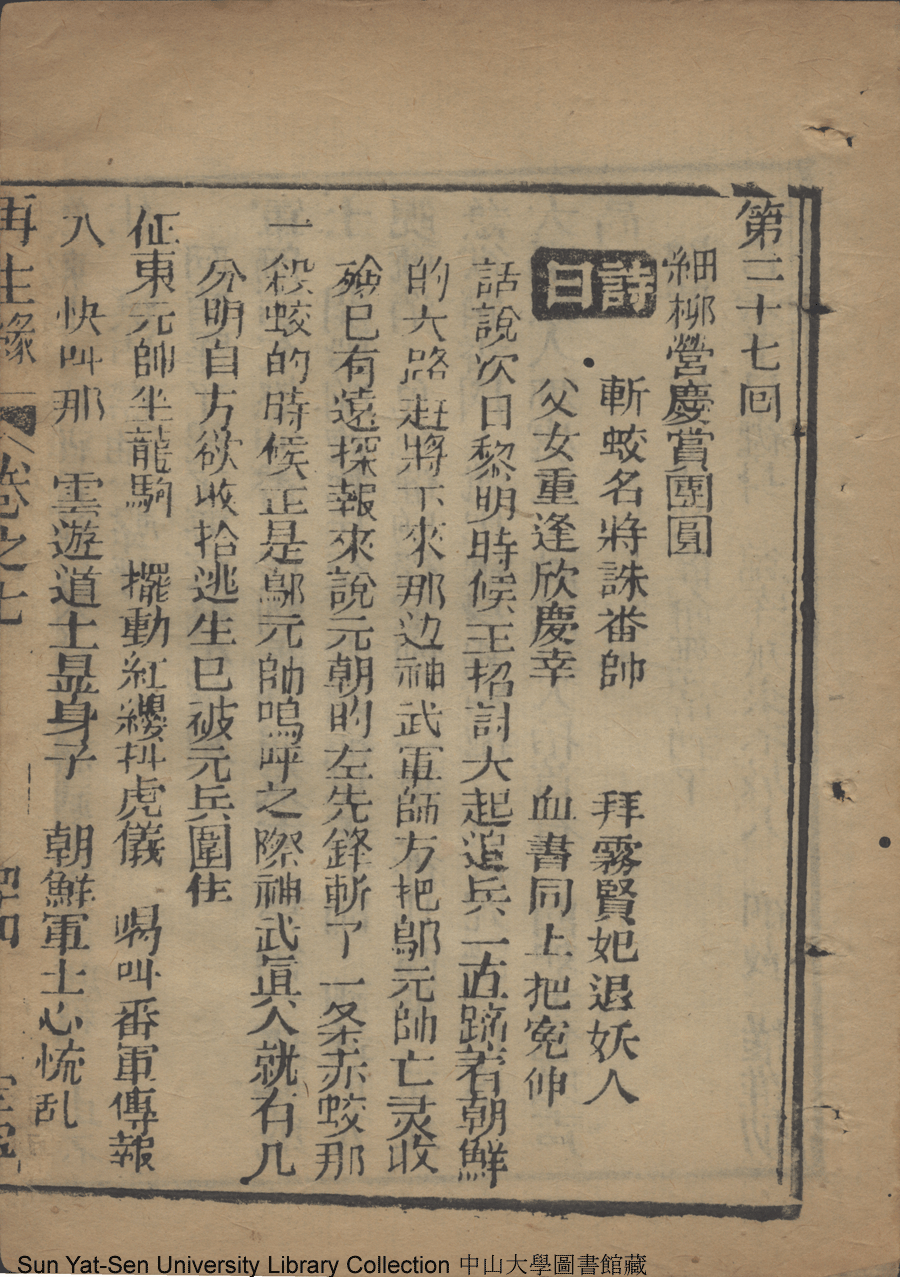 第二十七回
細柳營慶賞團圓
詩曰
斬蛟名將誅番帥 拜霧賢妃退妖人
父女重逢欣慶幸 血書同上把冤伸
話說次日黎明時候王招討大起追兵一直蹄着朝鮮
的大路赶將下來那边神武軍師方把鄔元帥亡灵收
殮已有遠探報來說元朝的左先鋒斬了一条赤蛟那
一殺蛟的時候正是鄔元帥嗚呼之際神武眞人就有几
分明自方欲收拾逃生巳被元兵圍住
征東元帥坐龍駒 擺動紅纓抖虎儀 喝叫番軍傳報
入 快叫那 雲遊道士显身子 朝鮮軍士心慌乱
再生緣 卷之七
Sun Yat-Sen University Library Collection 中山大學圖書館藏